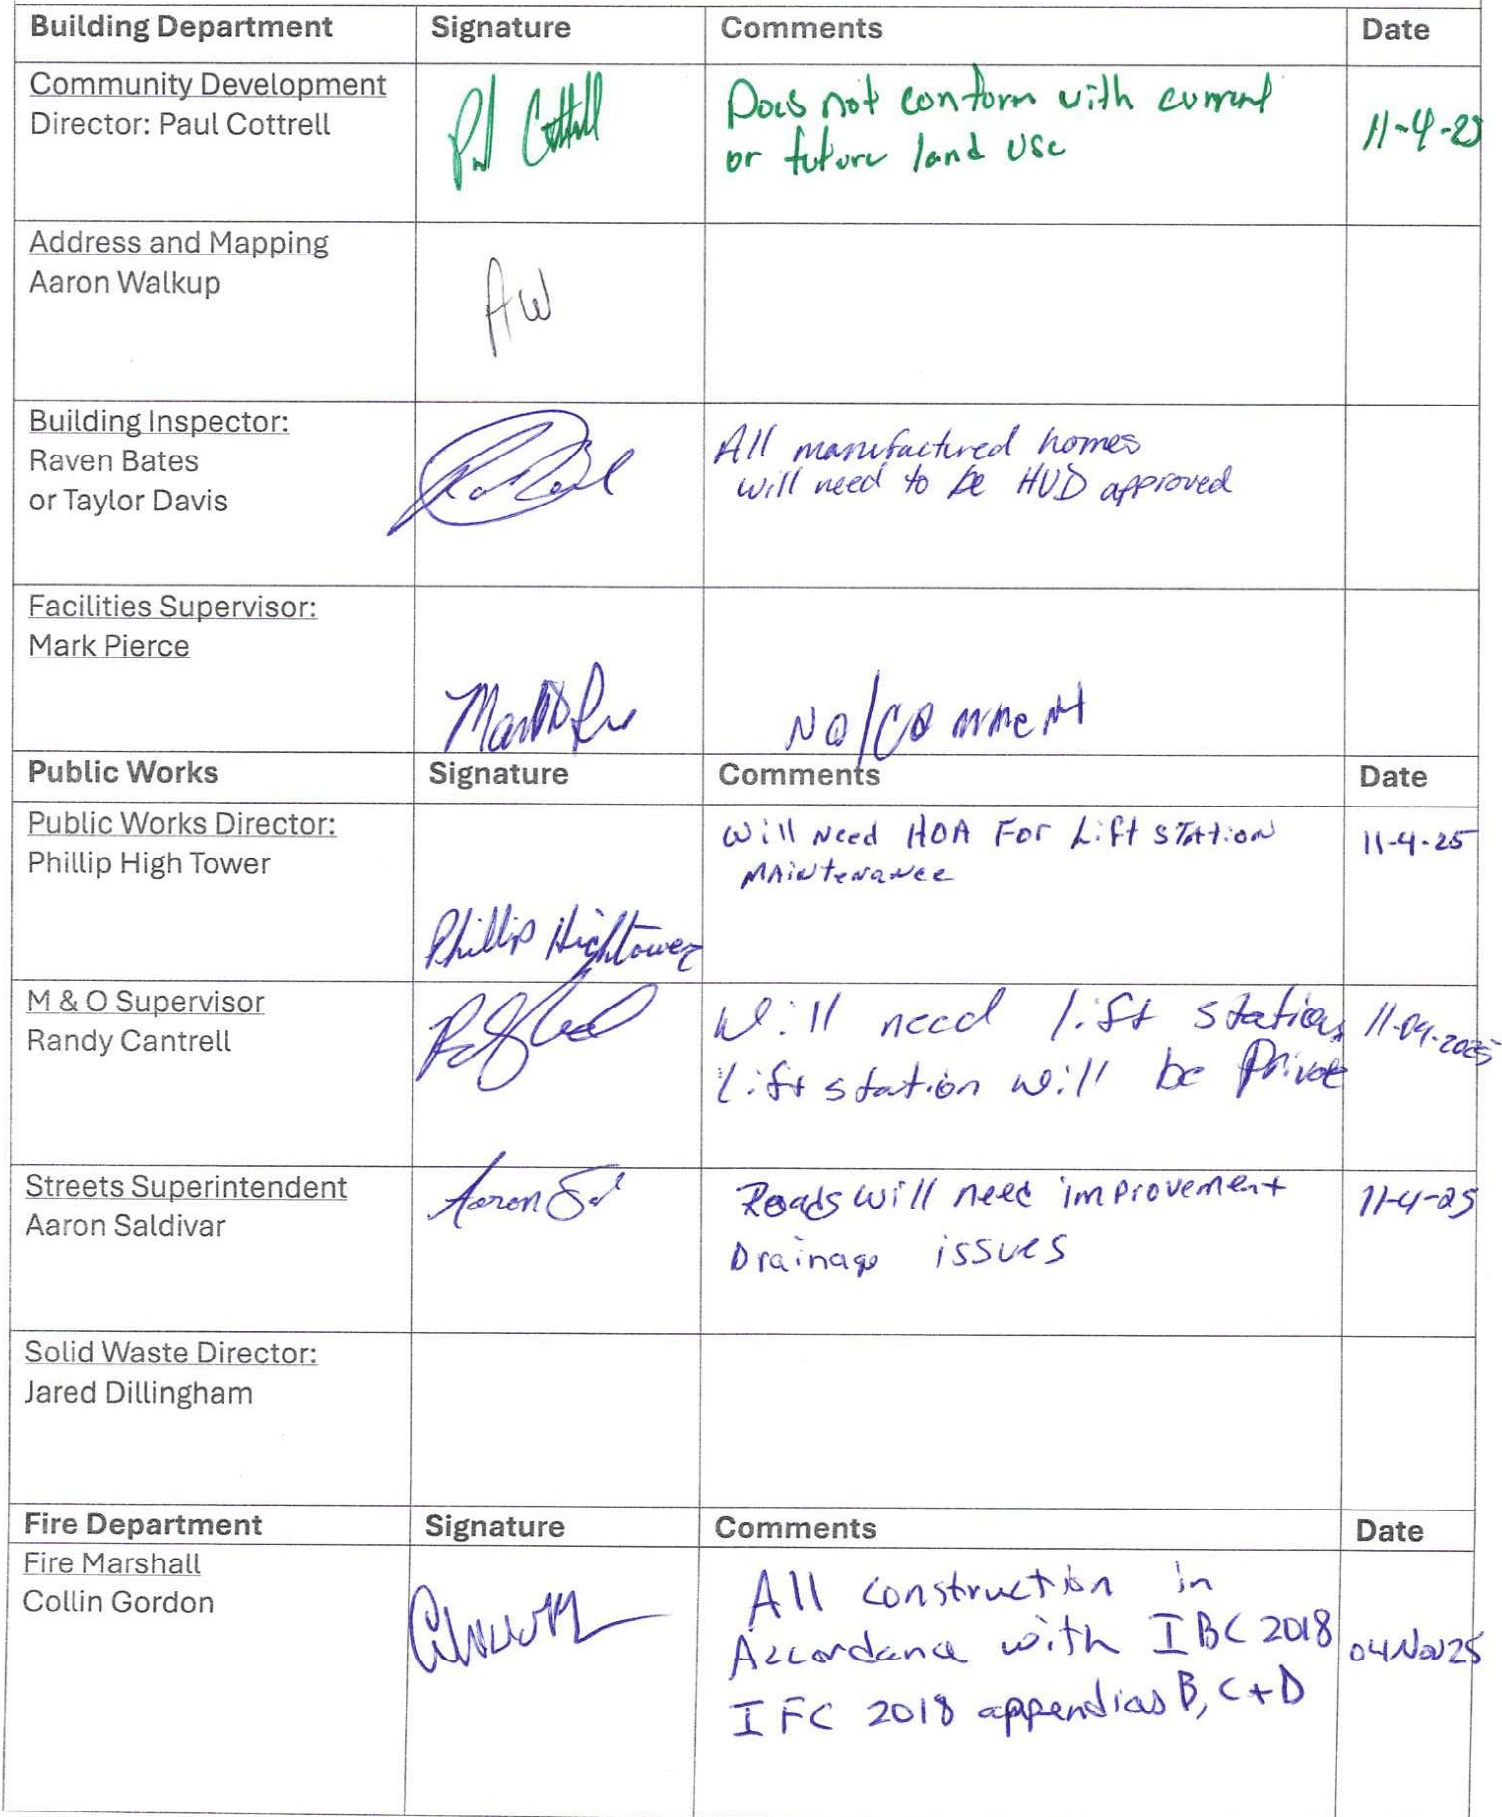 Building Department Signature Comments Date
Community Development
Director: Paul Cottrell
Paul Cottrell
Does not conform with current
or future land use
11-4-25
Address and Mapping
Aaron Walkup
AW
Building Inspector:
Raven Bates
or Taylor Davis
All manufactured homes
will need to be HUD approved
Facilities Supervisor:
Mark Pierce
No/Comment
Public Works Signature Comments Date
Public Works Director:
Phillip High Tower
Phillip Hightower
Will Need HOA For Lift Station
Maintenance
11-4-25
M & O Supervisor
Randy Cantrell
Will need lift station
Lift station will be Private
11-04-2025
Streets Superintendent
Aaron Saldivar
Aaron Sal
Roads will need improvement
Drainage issues
11-4-25
Solid Waste Director:
Jared Dillingham
Fire Department Signature Comments Date
Fire Marshall
Collin Gordon
All construction in
Accordance with IBC 2018
IFC 2018 appendias B, C + D
04Nov25